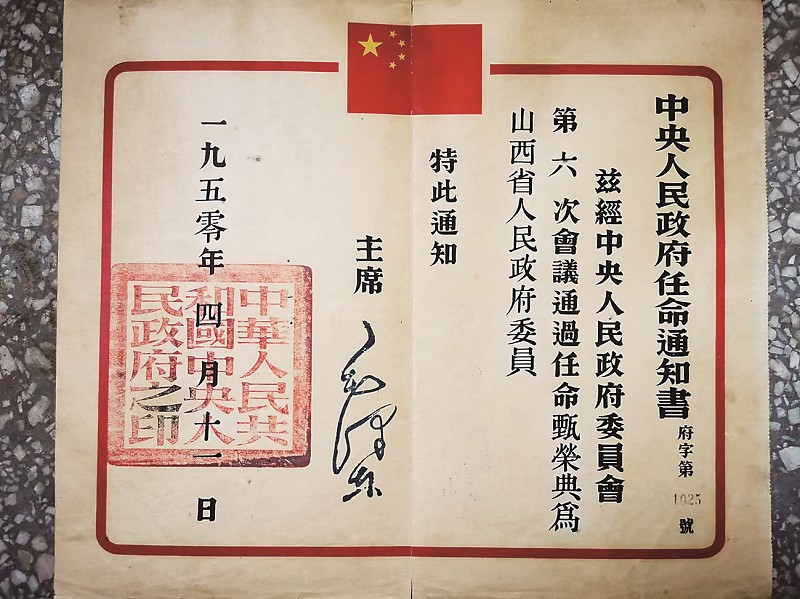 中央人民政府任命通知書
府字第1025號
茲經中央人民政府委員會
第六次會議通過任命甄榮典爲
山西省人民政府委員
特此通知
主席 毛澤東
一九五零年四月十一日
中華人民共
和國中央人
民政府之印